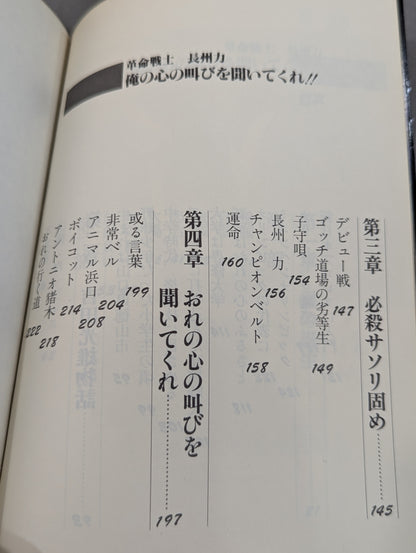 革命戦士　長州力
俺の心の叫びを聞いてくれ!!
第三章　必殺サソリ固め……145
デビュー戦　147
ゴッチ道場の劣等生　149
子守唄　154
長州　力　156
チャンピオンベルト　158
運命　160
第四章　おれの心の叫びを
聞いてくれ……197
或る言葉　199
非常ベル　204
アニマル浜口　208
ボイコット　214
アントニオ猪木　218
おれの行く道　222